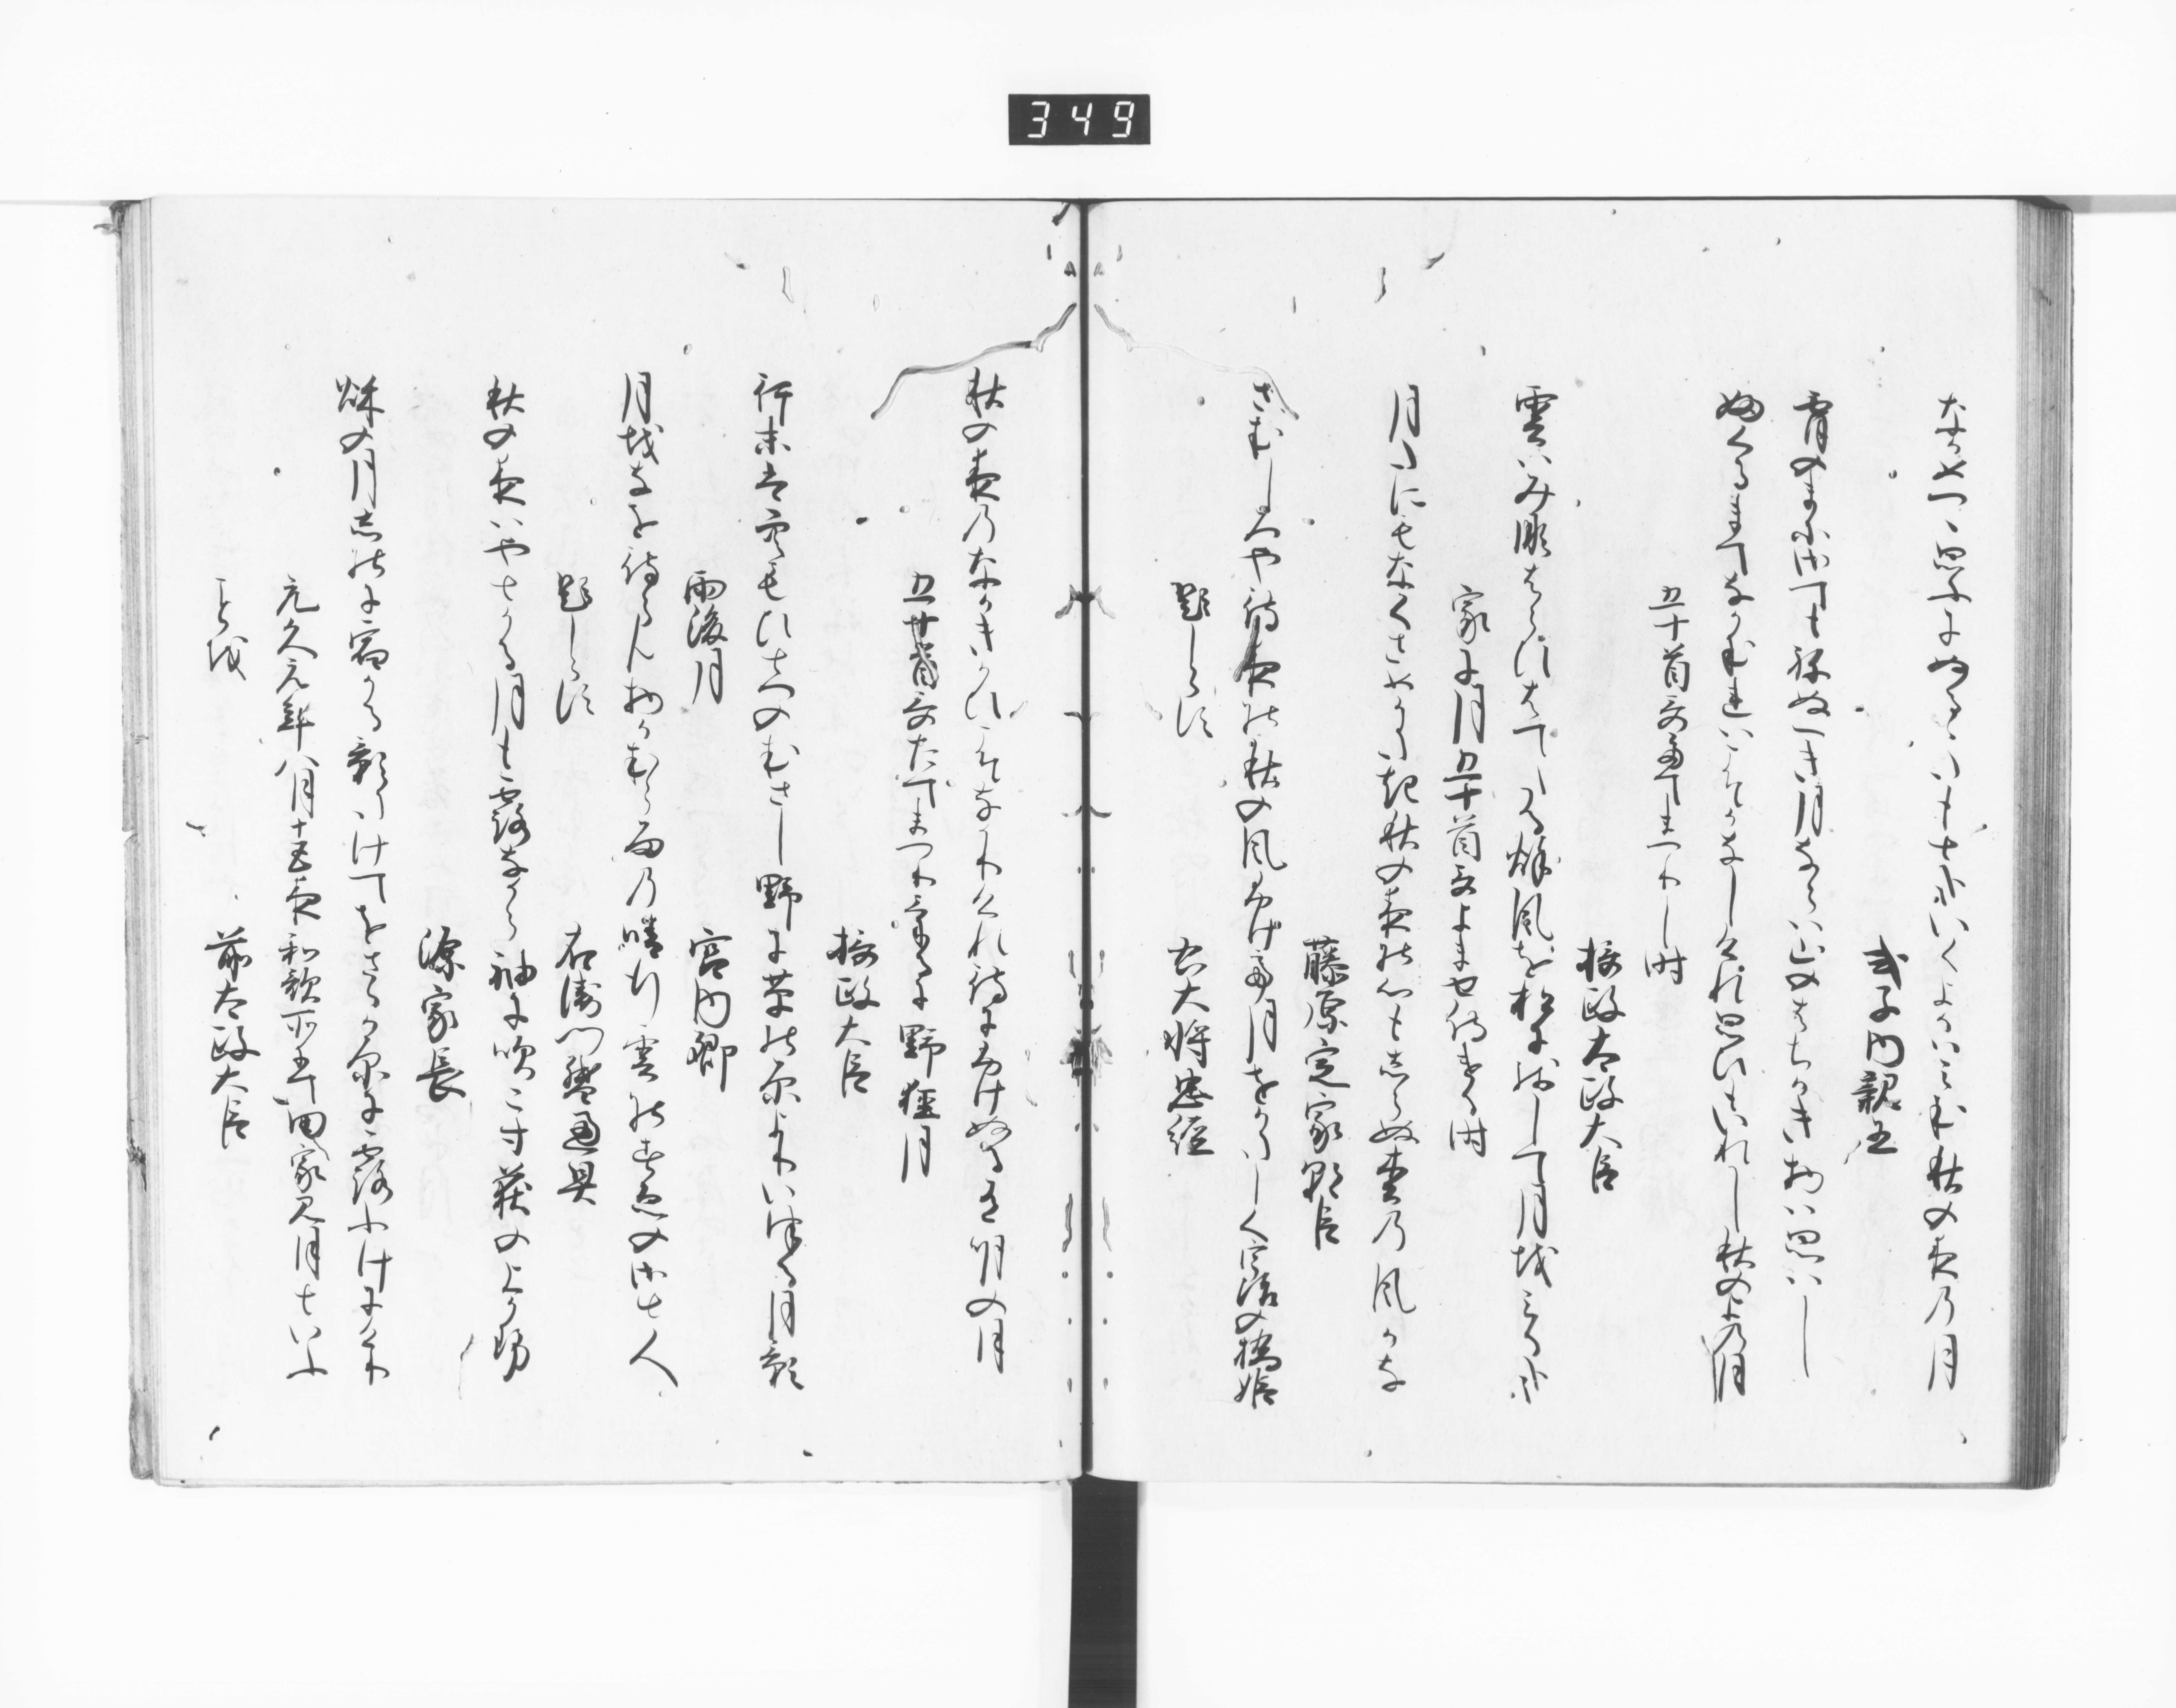 349
なかめつゝ思ふにぬるゝいも世すいくよかはみむ秋の夜の月
式子内親王
宵のまにさても祢ぬへき月ならは山のはちかき物は思はし
ふくるまてなかむれはこそかなしけれ思ひもいれし秋のよの月
五十首哥たてまつりし時
摂政太政大臣
雲はみなはらひはてたる秋風を松にのこして月越みる哉
家に月五十首哥よませ侍ける時
月たにもなくさめかたき秋の夜の心もしらぬ松の風かな
藤原定家朝臣
さむしろや待夜の秋の風ふけて月をかたしく宇治の橋姫
題しらす
右大将忠経
秋の夜のなかきかひこそなかりけれ待にふけぬる有明の月
五十首哥たてまつりけるに野径月
摂政太政大臣
行末は空もひとつのむさし野に草の原よりいつる月影
雨後月
宮内卿
月越なを待らん物かむら雨の晴行雲のすゑのさと人
題しらす
右衛門督通具
秋の夜はやとかる月も露なから袖に吹こす荻のうは風
源家長
秋の月しのに宿かる影たけてをさゝか原に露ふけにけり
元久元年八月十五夜和歌所にて田家見月といふ
ことを
前太政大臣